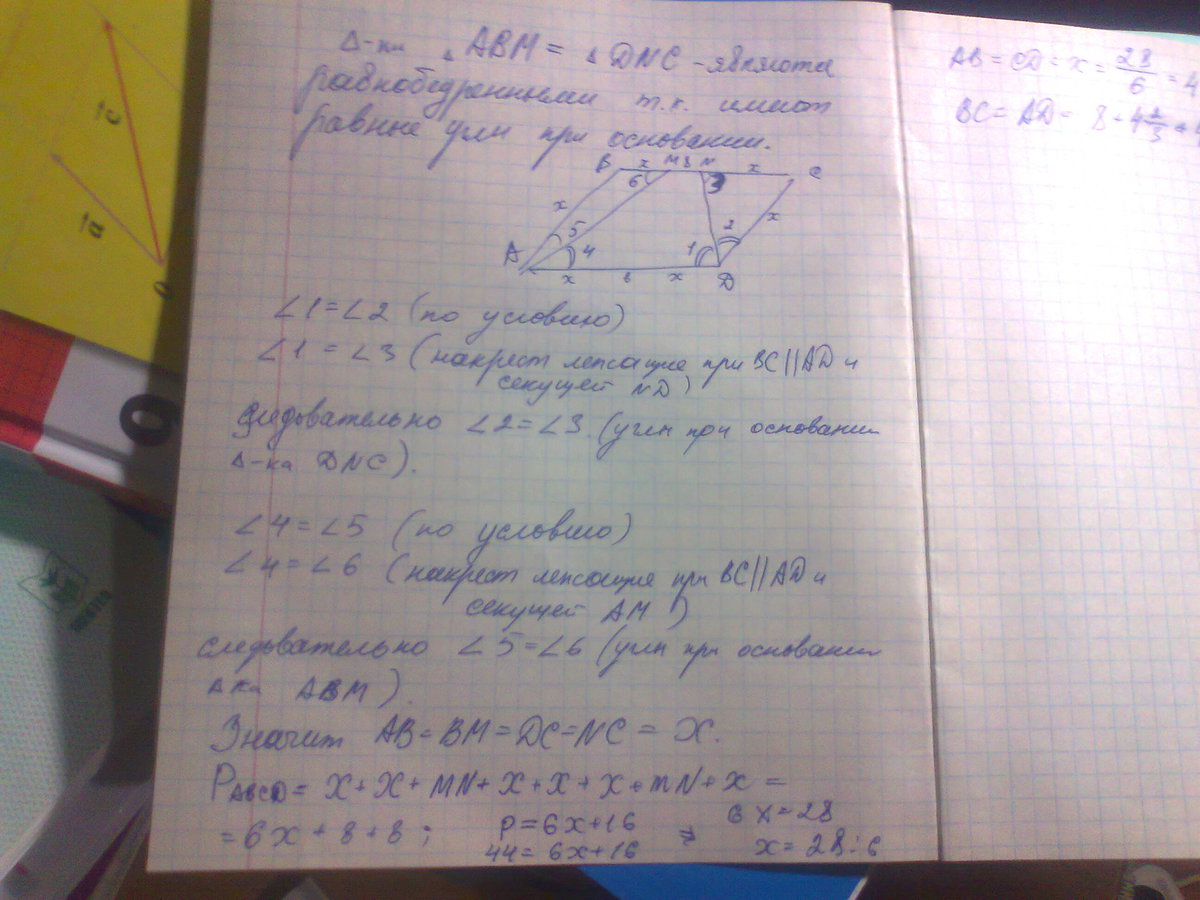 Δ-ки ΔABM = ΔDNC - являются
равнобедренными т.к. имеют
равные углы при основании.
B x M 8 N x C
6 3
x 5 2 x
A 4 1
x 8 x D
∠1=∠2 (по условию)
∠1=∠3 (накрест лежащие при BC||AD и
секущей ND)
следовательно ∠2=∠3 (углы при основании
Δ-ка DNC).
∠4=∠5 (по условию)
∠4=∠6 (накрест лежащие при BC||AD и
секущей AM)
следовательно ∠5=∠6 (углы при основании
Δ-ка ABM).
Значит AB=BM=DC=NC=x.
P ABCD = x+x+MN+x+x+x+MN+x=
=6x+8+8; P=6x+16 ⇒ 6x=28
44=6x+16 x=28:6
AB=CD=x=28/6=4
BC=AD=8+4 2/3+
a
c